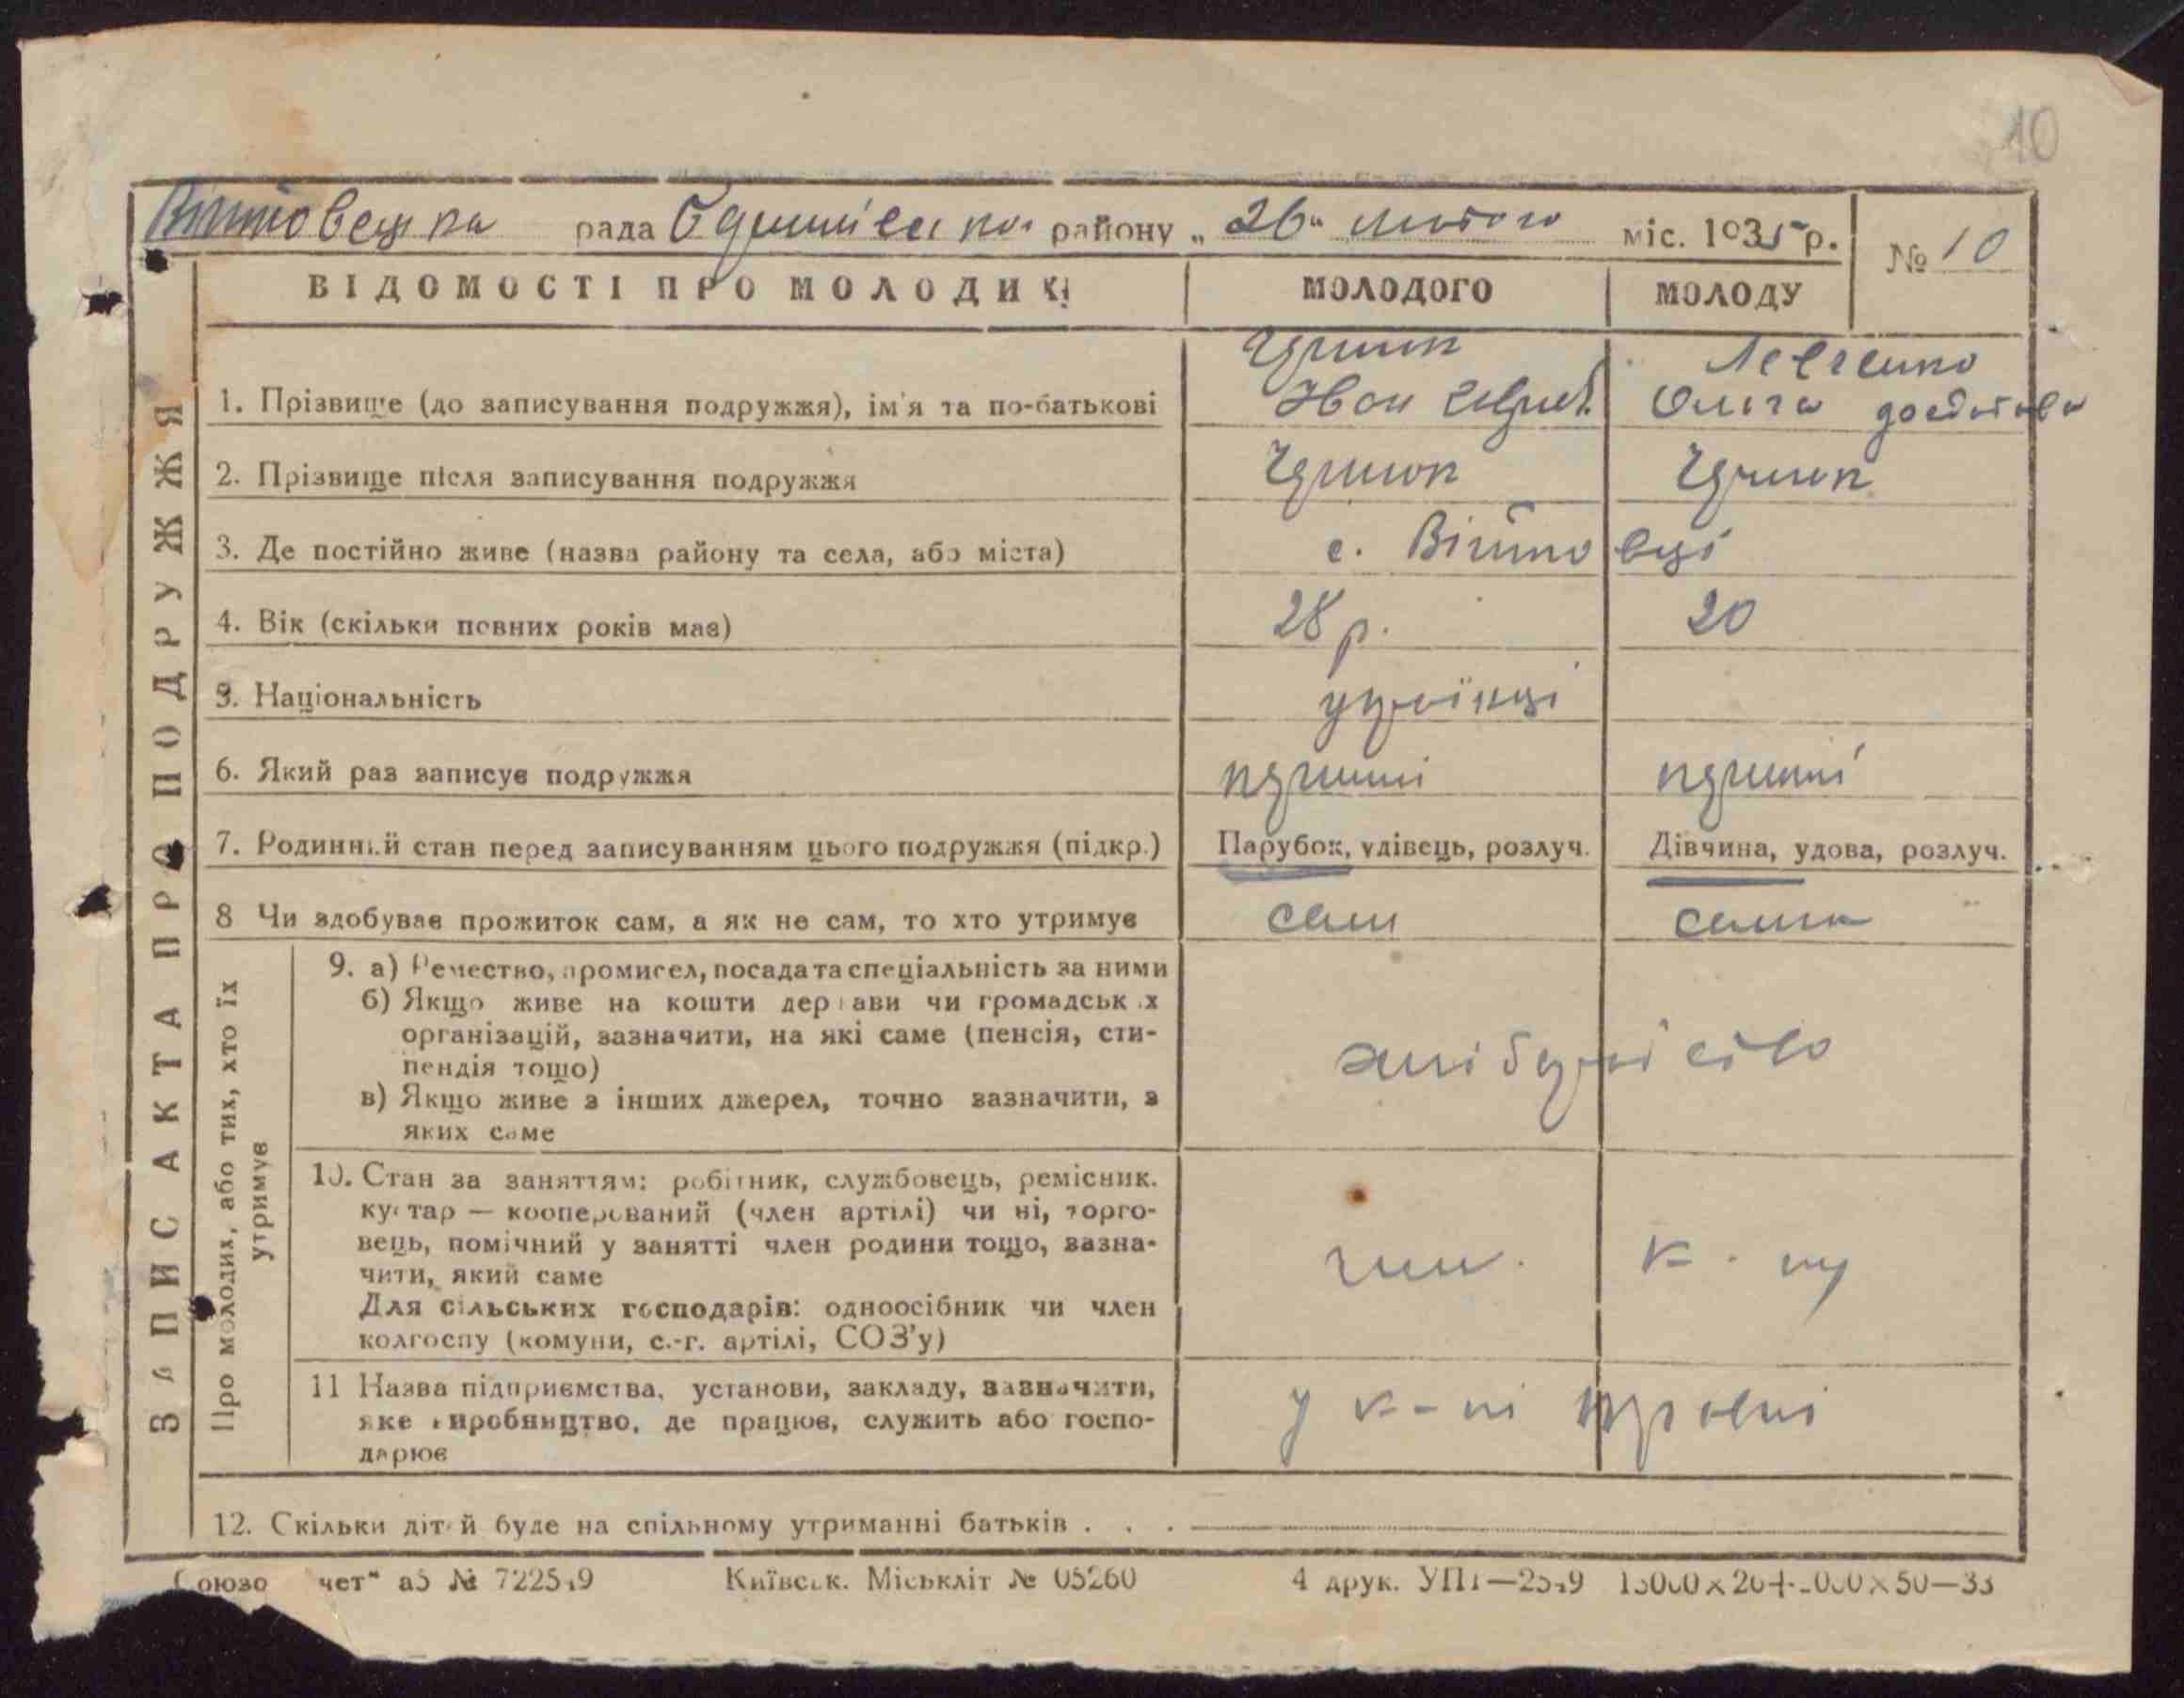 10
Війтовецька рада району „ 26 “ лютого міс. 1935 р. № 10
ВІДОМОСТІ ПРО МОЛОДИХ МОЛОДОГО МОЛОДУ
ЗАПИС АКТА ПРО ПОДРУЖЖЯ
1. Прізвище (до записування подружжя), ім'я та по-батькові Іван Левченко Ольга
2. Прізвище після записування подружжя
3. Де постійно живе (назва району та села, або міста) с. Війтовці
4. Вік (скільки повних років має) 28 р. 20
5. Національність українці
6. Який раз записує подружжя перший перший
7. Родинний стан перед записуванням цього подружжя (підкр.) Парубок, удівець, розлуч. Дівчина, удова, розлуч.
8 Чи здобуває прожиток сам, а як не сам, то хто утримує сам сама
Про молодих, або тих, хто їх утримує
9. а) Ремество, промисел, посада та спеціальність за ними
б) Якщо живе на кошти держави чи громадських
організацій, зазначити, на які саме (пенсія, сти-
пендія тощо)
в) Якщо живе з інших джерел, точно зазначити, з
яких саме
хліборобство
10. Стан за заняттям: робітник, службовець, ремісник.
кустар — кооперований (член артілі) чи ні, торго-
вець, помічний у занятті член родини тощо, зазна-
чити, який саме
Для сільських господарів: одноосібник чи член
колгоспу (комуни, с.-г. артілі, СОЗ'у)
член к-пу
11 Назва підприємства, установи, закладу, зазначити,
яке виробництво, де працює, служить або госпо-
дарює
у к-пі
12. Скільки дітей буде на спільному утриманні батьків . . .
Київськ. Міськліт № 05260 4 друк.